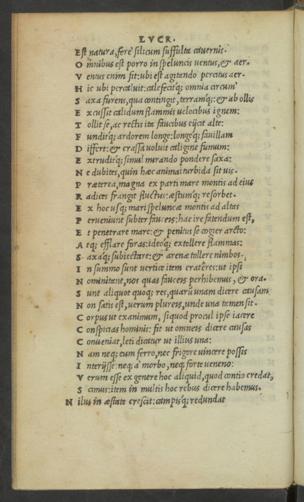 LVCR.
Est natura, ferè silicum suffulta cauernis.
Omnibus est porro in speluncis uentus, & aer.
Ventus enim fit: ubi est agitando percitus aer.
Hic ubi percaluit: calefecitq; omnia circum
Saxa furens, qua contingit, terramq;: & ab ollis
Excussit calidum flammis uelocibus ignem:
Tollit se, ac rectis ita faucibus eijcit alte:
Funditq; ardorem longe: longeq; fauillam
Differt: & crassa uoluit caligine fumum:
Extruditq; simul mirando pondere saxa:
Ne dubites, quin hæc animai turbida sit uis.
Præterea, magna ex parti mare montis ad eius
Radices frangit fluctus: æstumq; resorbet.
Ex hoc usq; mari speluncæ montis ad altas
Perueniunt subter fauces: hac ire fatendum est,
Et penetrare mare: & penitus se cogier arcto:
Atq; efflare foras: ideoq; extellere flammas:
Saxaq; subiectare: & arenæ tollere nimbos.
In summo sunt uertice item crateres: ut ipsi
Nominitent, nos quas fauces perhibemus, & ora.
Sunt aliquot quoq; res, quarum unam dicere causam
Non satis est, uerum plureis, unde una tamen sit.
Corpus ut exanimum, siquod procul ipse iacere
Conspicias hominis: fit ut omneis dicere causas
Conueniat, leti dicatur ut illius una:
Nam neq; eum ferro, nec frigore uincere possis
Interijsse: neq; a morbo, neq; forte ueneno:
Verum esse ex genere hoc aliquid, quod contio credat,
Scimus: item in multis hoc rebus dicere habemus.
Nilus in æstate crescit: campisq; redundat